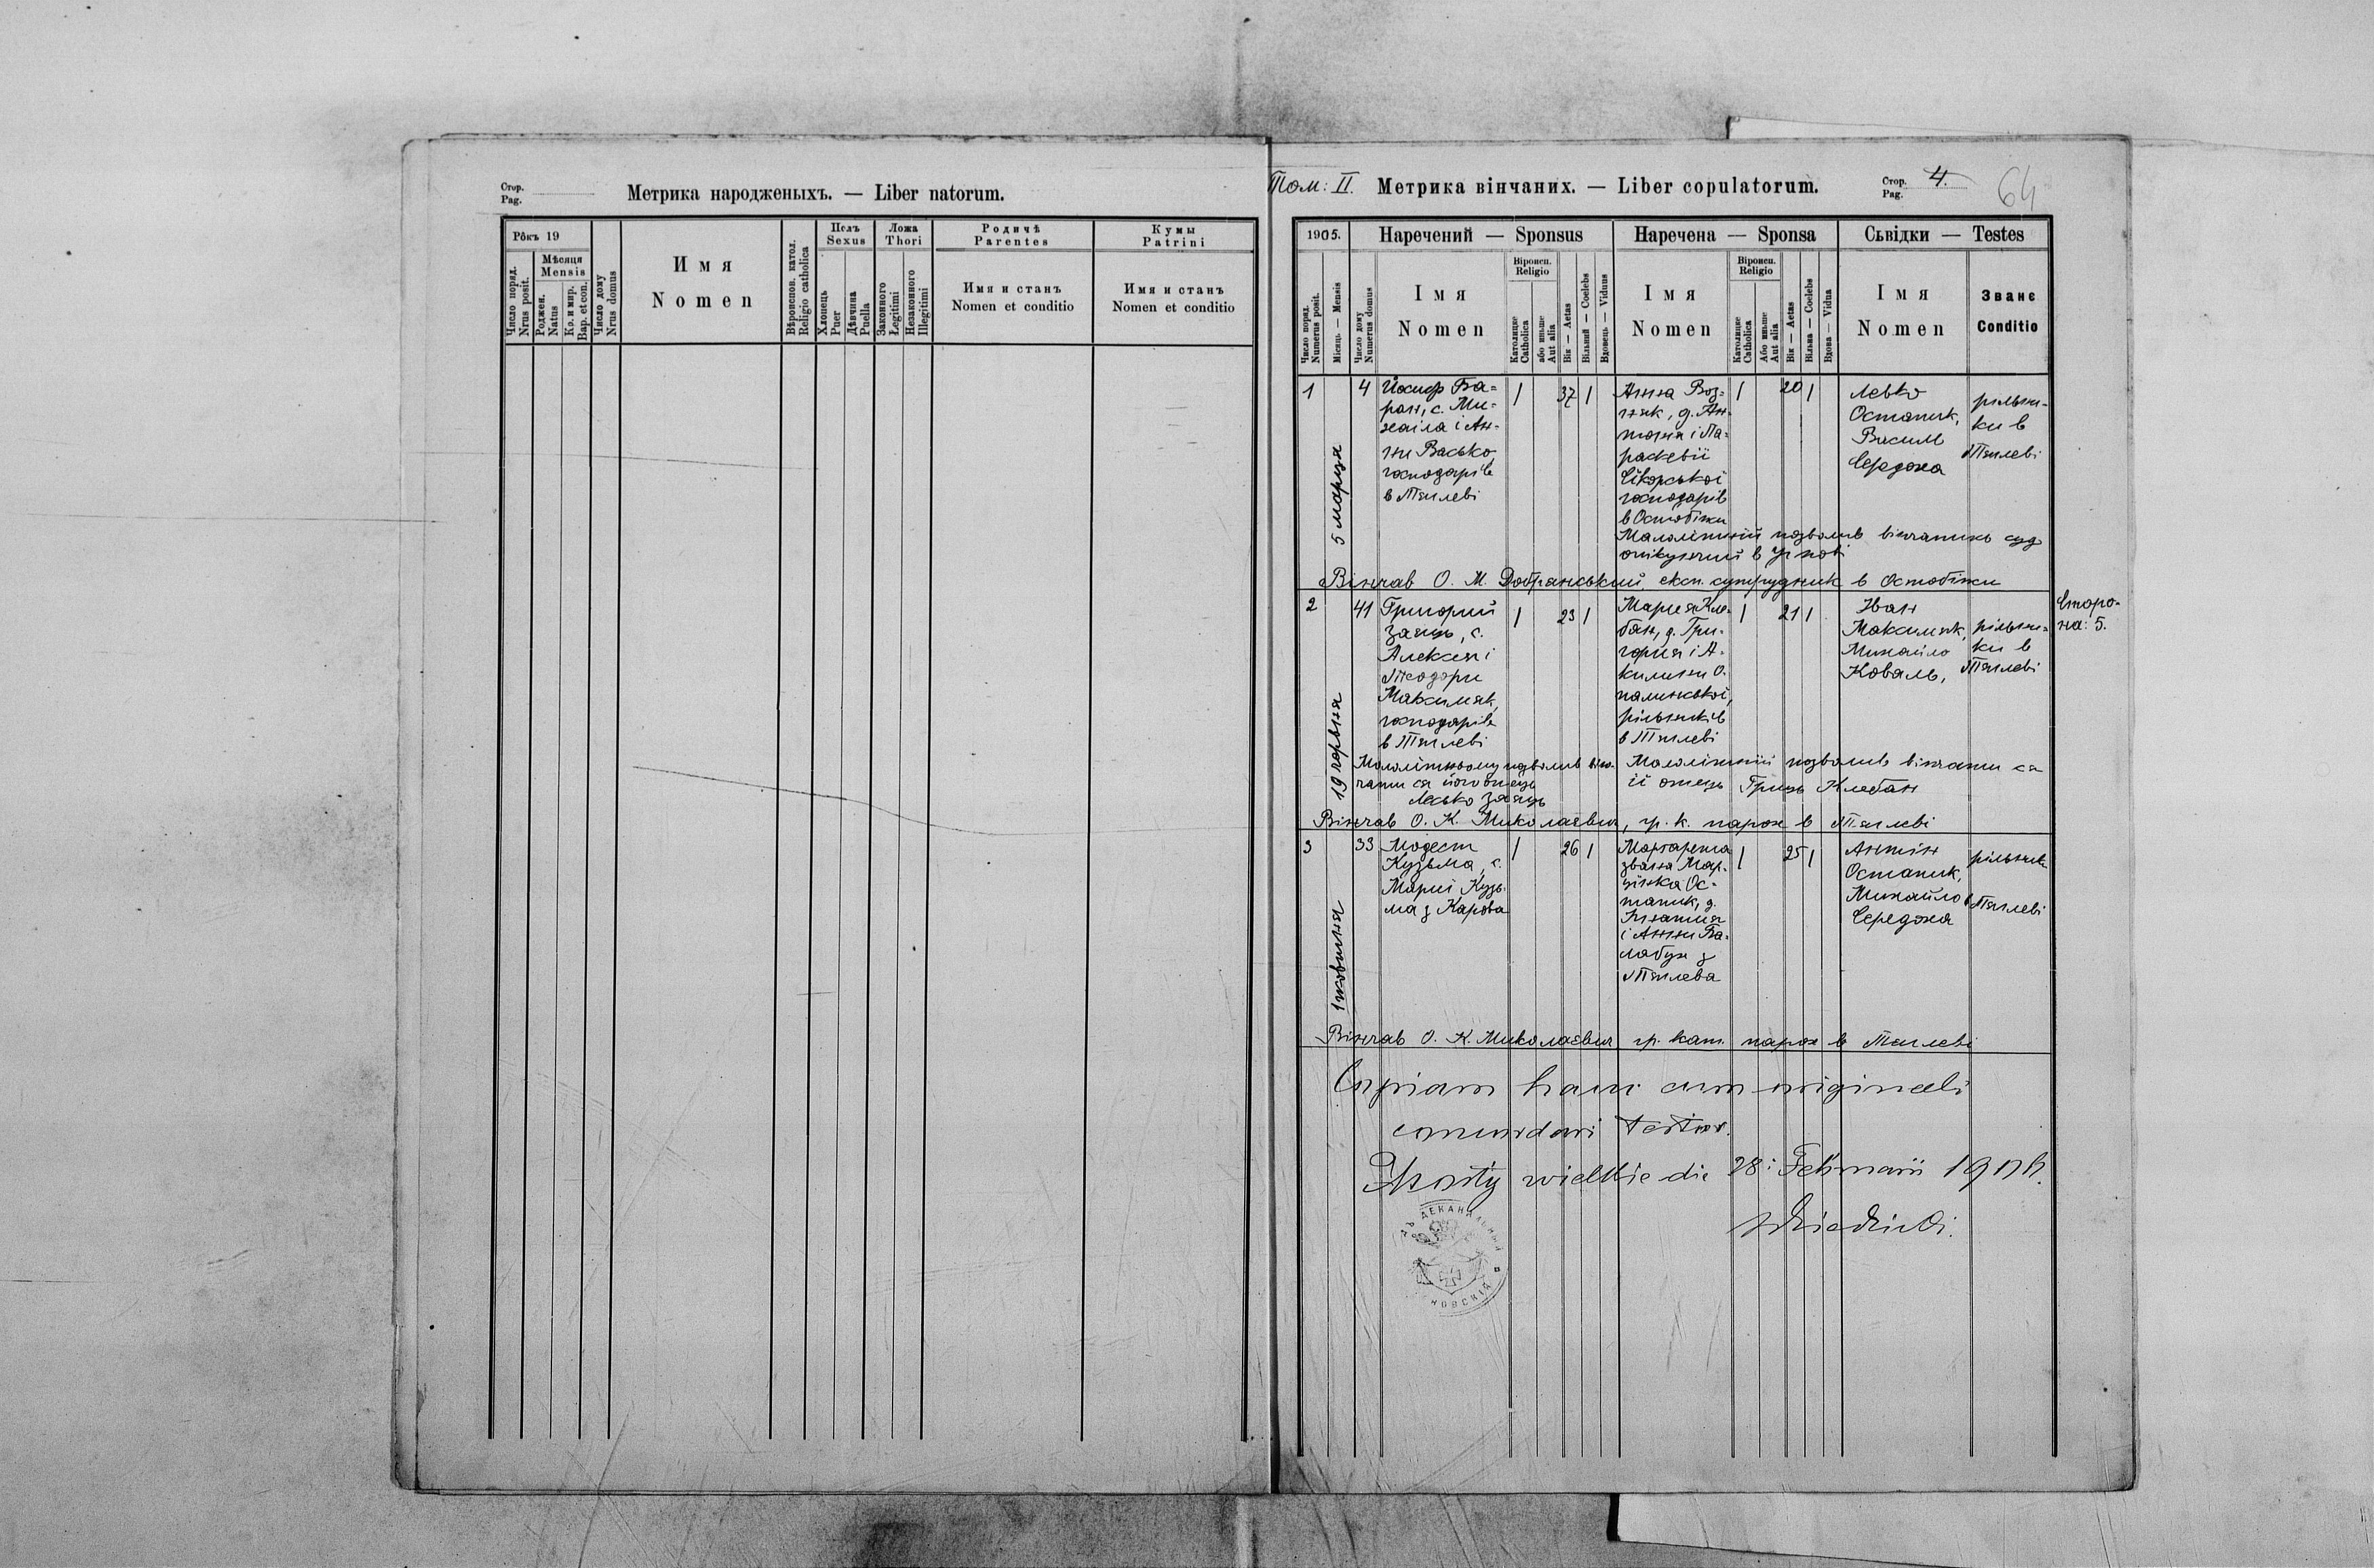 Стор.
Pag.
Метрика народженыхъ. — Liber natorum.
Рôкъ 19
Число поряд.
Nrus posit.
Мѣсяця
Mensis
Роджен.
Natus
Кр. и мир.
Bap. et con.
Число дому
Nrus domus
Имя
Nomen
Вѣроиспов. катол.
Religio catholica
Полъ
Sexus
Хлопець
Puer
Дѣвчина
Puella
Ложа
Thori
Законного
Legitimi
Незаконного
Illegitimi
Родичѣ
Parentes
Имя и станъ
Nomen et conditio
Кумы
Patrini
Имя и станъ
Nomen et conditio
Том: II. Метрика вінчаних. — Liber copulatorum.
Стор.
Pag. 4.
64
1905.
Наречений — Sponsus
Наречена — Sponsa
Сьвідки — Testes
Число поряд.
Numerus posit.
Місяць — Mensis
Число дому
Numerus domus
Імя
Nomen
Віроисп.
Religio
Католицке
Catholica
або иньше
Aut alia
Вік — Aetas
Вільний — Coelebs
Вдовець — Viduus
Імя
Nomen
Віроисп.
Religio
Католицке
Catholica
Або иньше
Aut alia
Вік — Aetas
Вільна — Coelebs
Вдова — Vidua
Імя
Nomen
Званє
Conditio
1
5 марця
4
Йосиф Ба-
ран, с. Ми-
хаіла і Ан-
ни Васько,
господарів
в Тяглеві
1
37
1
Анна Воз-
няк, д. Ан-
тонія і Па-
раскевії
Сікорської
господарів
в Остобіжи
1
20
1
Левко
Остапик,
Василь
Середюха
рільни-
ки в
Тяглеві
Малолітній позволив вінчатись суд
опікунчий в Угнові
Вінчав О. М. Добрянський, експ. сотрудник в Остобіжи
2
19 червня
41
Григорий
Заяць, с.
Алексія і
Теодори
Максимяк,
господарів
в Тяглеві
1
23
1
Мария Кле-
бан, д. Гри-
горія і А-
килини О-
палинської,
рільників
в Тяглеві
1
21
1
Іван
Максимяк,
Михайло
Коваль,
рільни-
ки в
Тяглеві
Сторо-
на: 5.
Малолітньому позволив він-
чати ся його отець
Лесько Заяць
Малолітній позволив вінчати ся
її отець Гриць Клебан
Вінчав О. К. Миколаєвич, гр. к. парох в Тяглеві
3
1 жовтня
33
Модест
Кузьма, с.
Марії Кузь-
ма з Карова
1
26
1
Маргарета
звана Мар-
цінка Ос-
тапик, д.
Ігнатия
і Анни Ба-
лабух з
Тяглева
1
25
1
Антін
Остапик,
Михайло
Середюха
рільники
в Тяглеві
Вінчав О. К. Миколаєвич гр. кат. парох в Тяглеві
Copiam hanc cum originali
concordari testor.
wielkie die 28: Februarii 190
ДЕКАНАЛЬНЫЙ